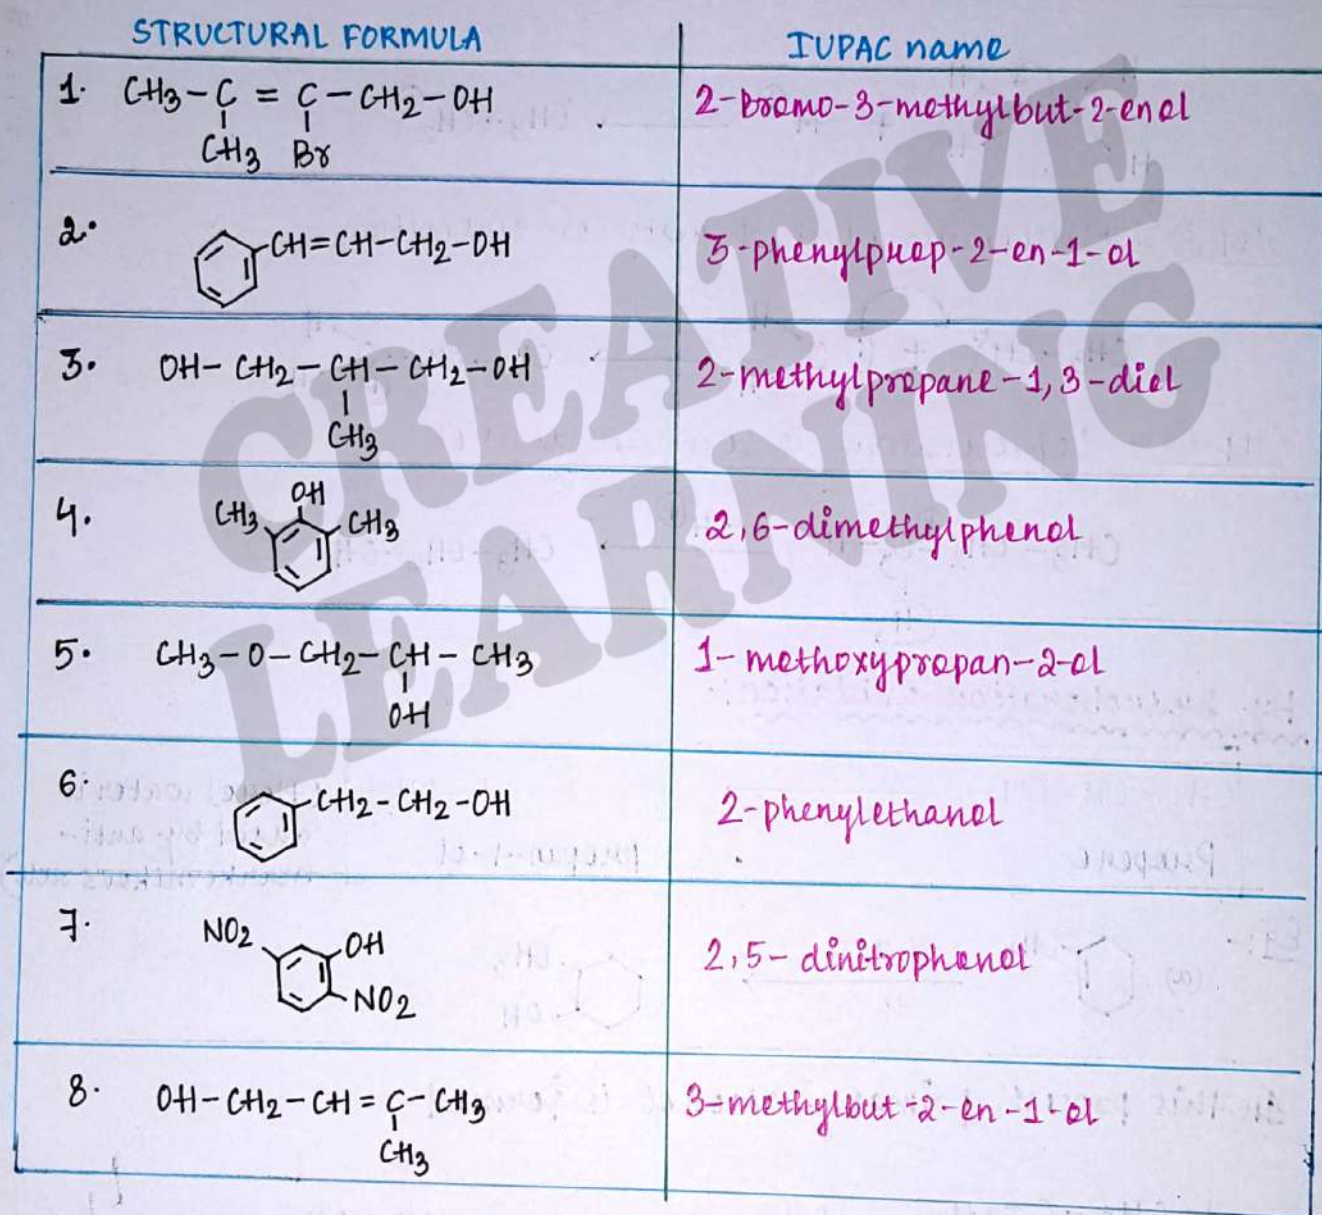 STRUCTURAL FORMULA
IUPAC name
1. CH3-C = C-CH2-OH
CH3 Br
2-bromo-3-methylbut-2-enol
2. CH=CH-CH2-OH
3-phenylprop-2-en-1-ol
3. OH-CH2-CH-CH2-OH
CH3
2-methylpropane-1,3-diol
4. OH
CH3 CH3
2,6-dimethylphenol
5. CH3-O-CH2-CH-CH3
OH
1-methoxypropan-2-ol
6. CH2-CH2-OH
2-phenylethanol
7. NO2 OH
NO2
2,5-dinitrophenol
8. OH-CH2-CH=C-CH3
CH3
3-methylbut-2-en-1-ol
CREATIVE
LEARNING